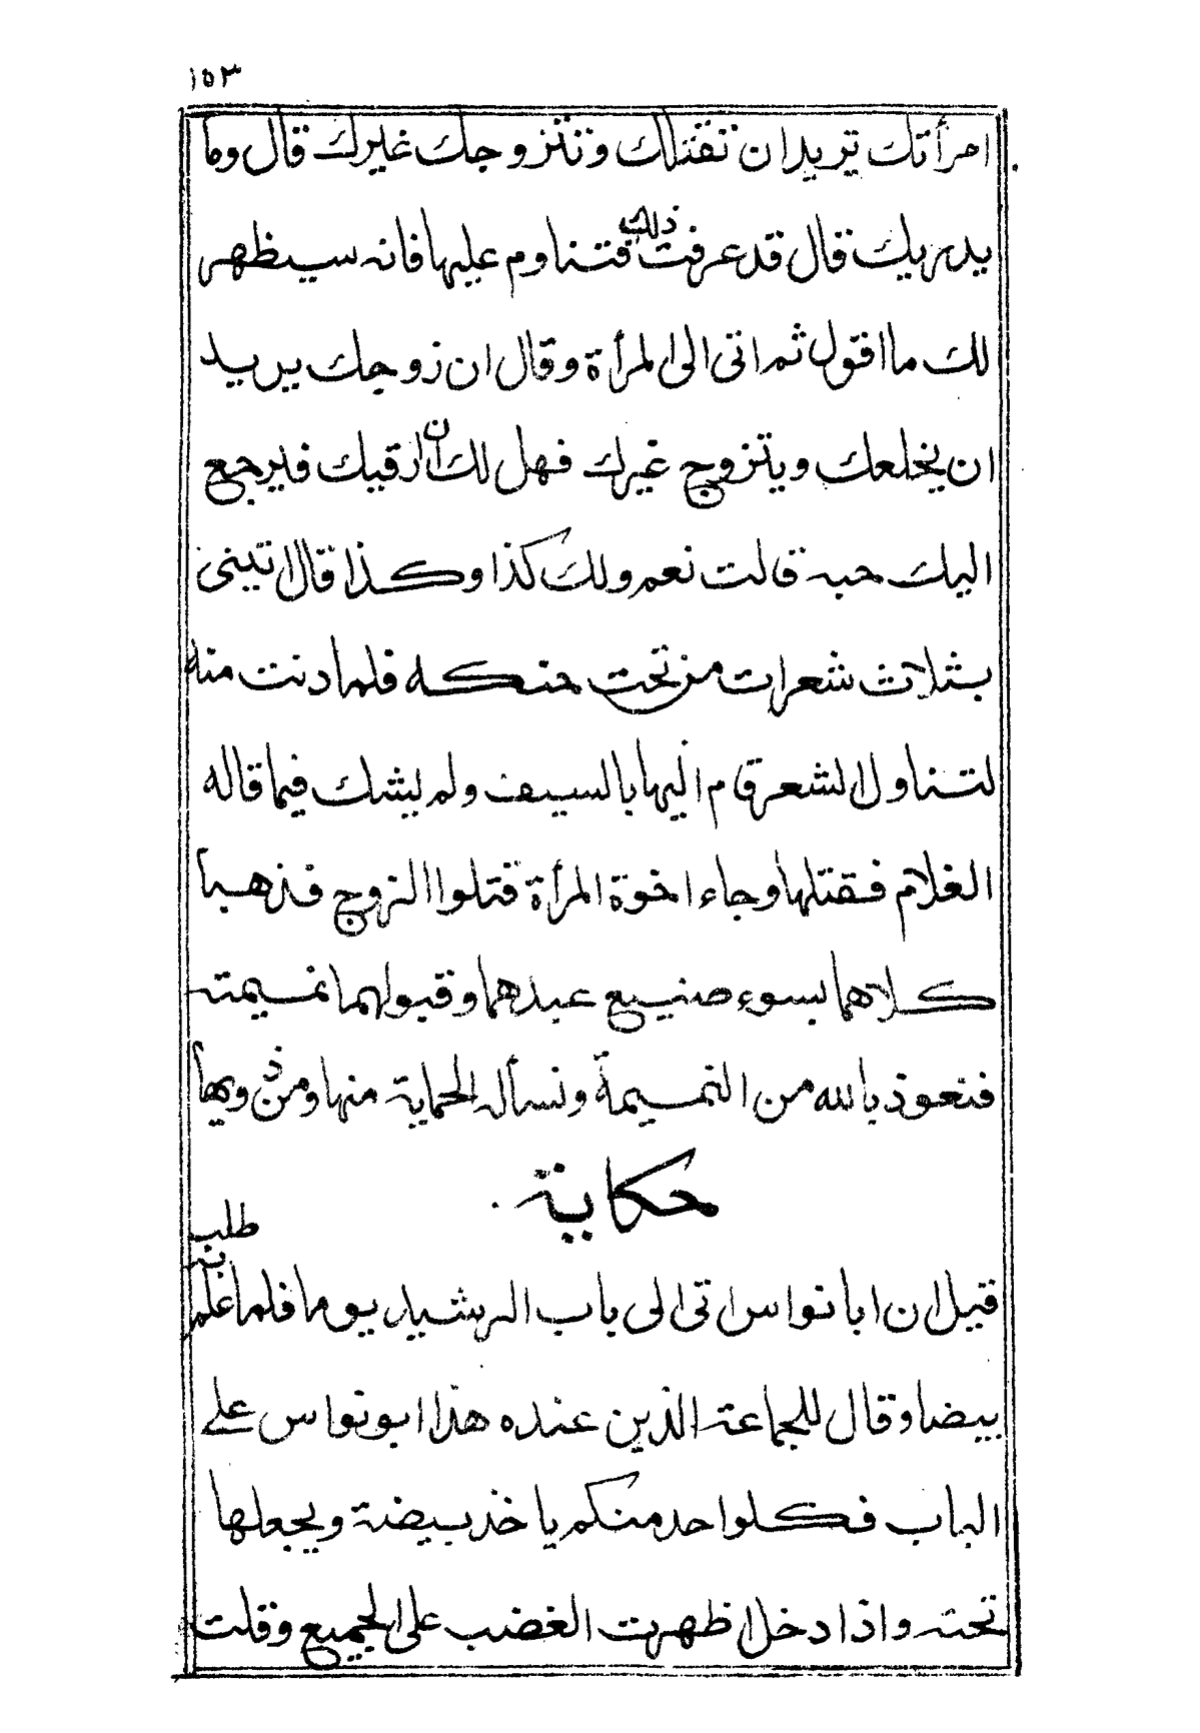 ١٥٣
امرأتك تريد ان تقتلك وتتزوجك غيرك قال وما
يدريك قال قد عرفت ذلك فتناوم عليها فانه سيظهر
لك ما اقول ثم اتى الى المرأة وقال ان زوجك يريد
ان يخلعك ويتزوج غيرك فهل لك ان ارقيك فيرجع
اليك حبه قالت نعم ولك كذا وكذا قال اتينى
بثلاث شعرات من تحت حنكه فلما دنت منه
لتناول الشعر قام اليها بالسيف ولم يشك فيما قاله
الغلام فقتلها وجاء اخوة المرأة قتلوا الزوج فذهبا
كلاهما بسوء صنيع عبدهما وقبولهما نميمته
فنعوذ بالله من النميمة ونسأله الحماية منها ومن ذويها
حكاية
قيل ان ابا نواس اتى الى باب الرشيد يوما فلما علم به طلب
بيضا وقال للجماعة الذين عنده هذا ابو نواس على
الباب فكلوا حد منكم ياخذ بيضة ويجعلها
تحته واذا دخل اظهرت الغضب على الجميع وقلت